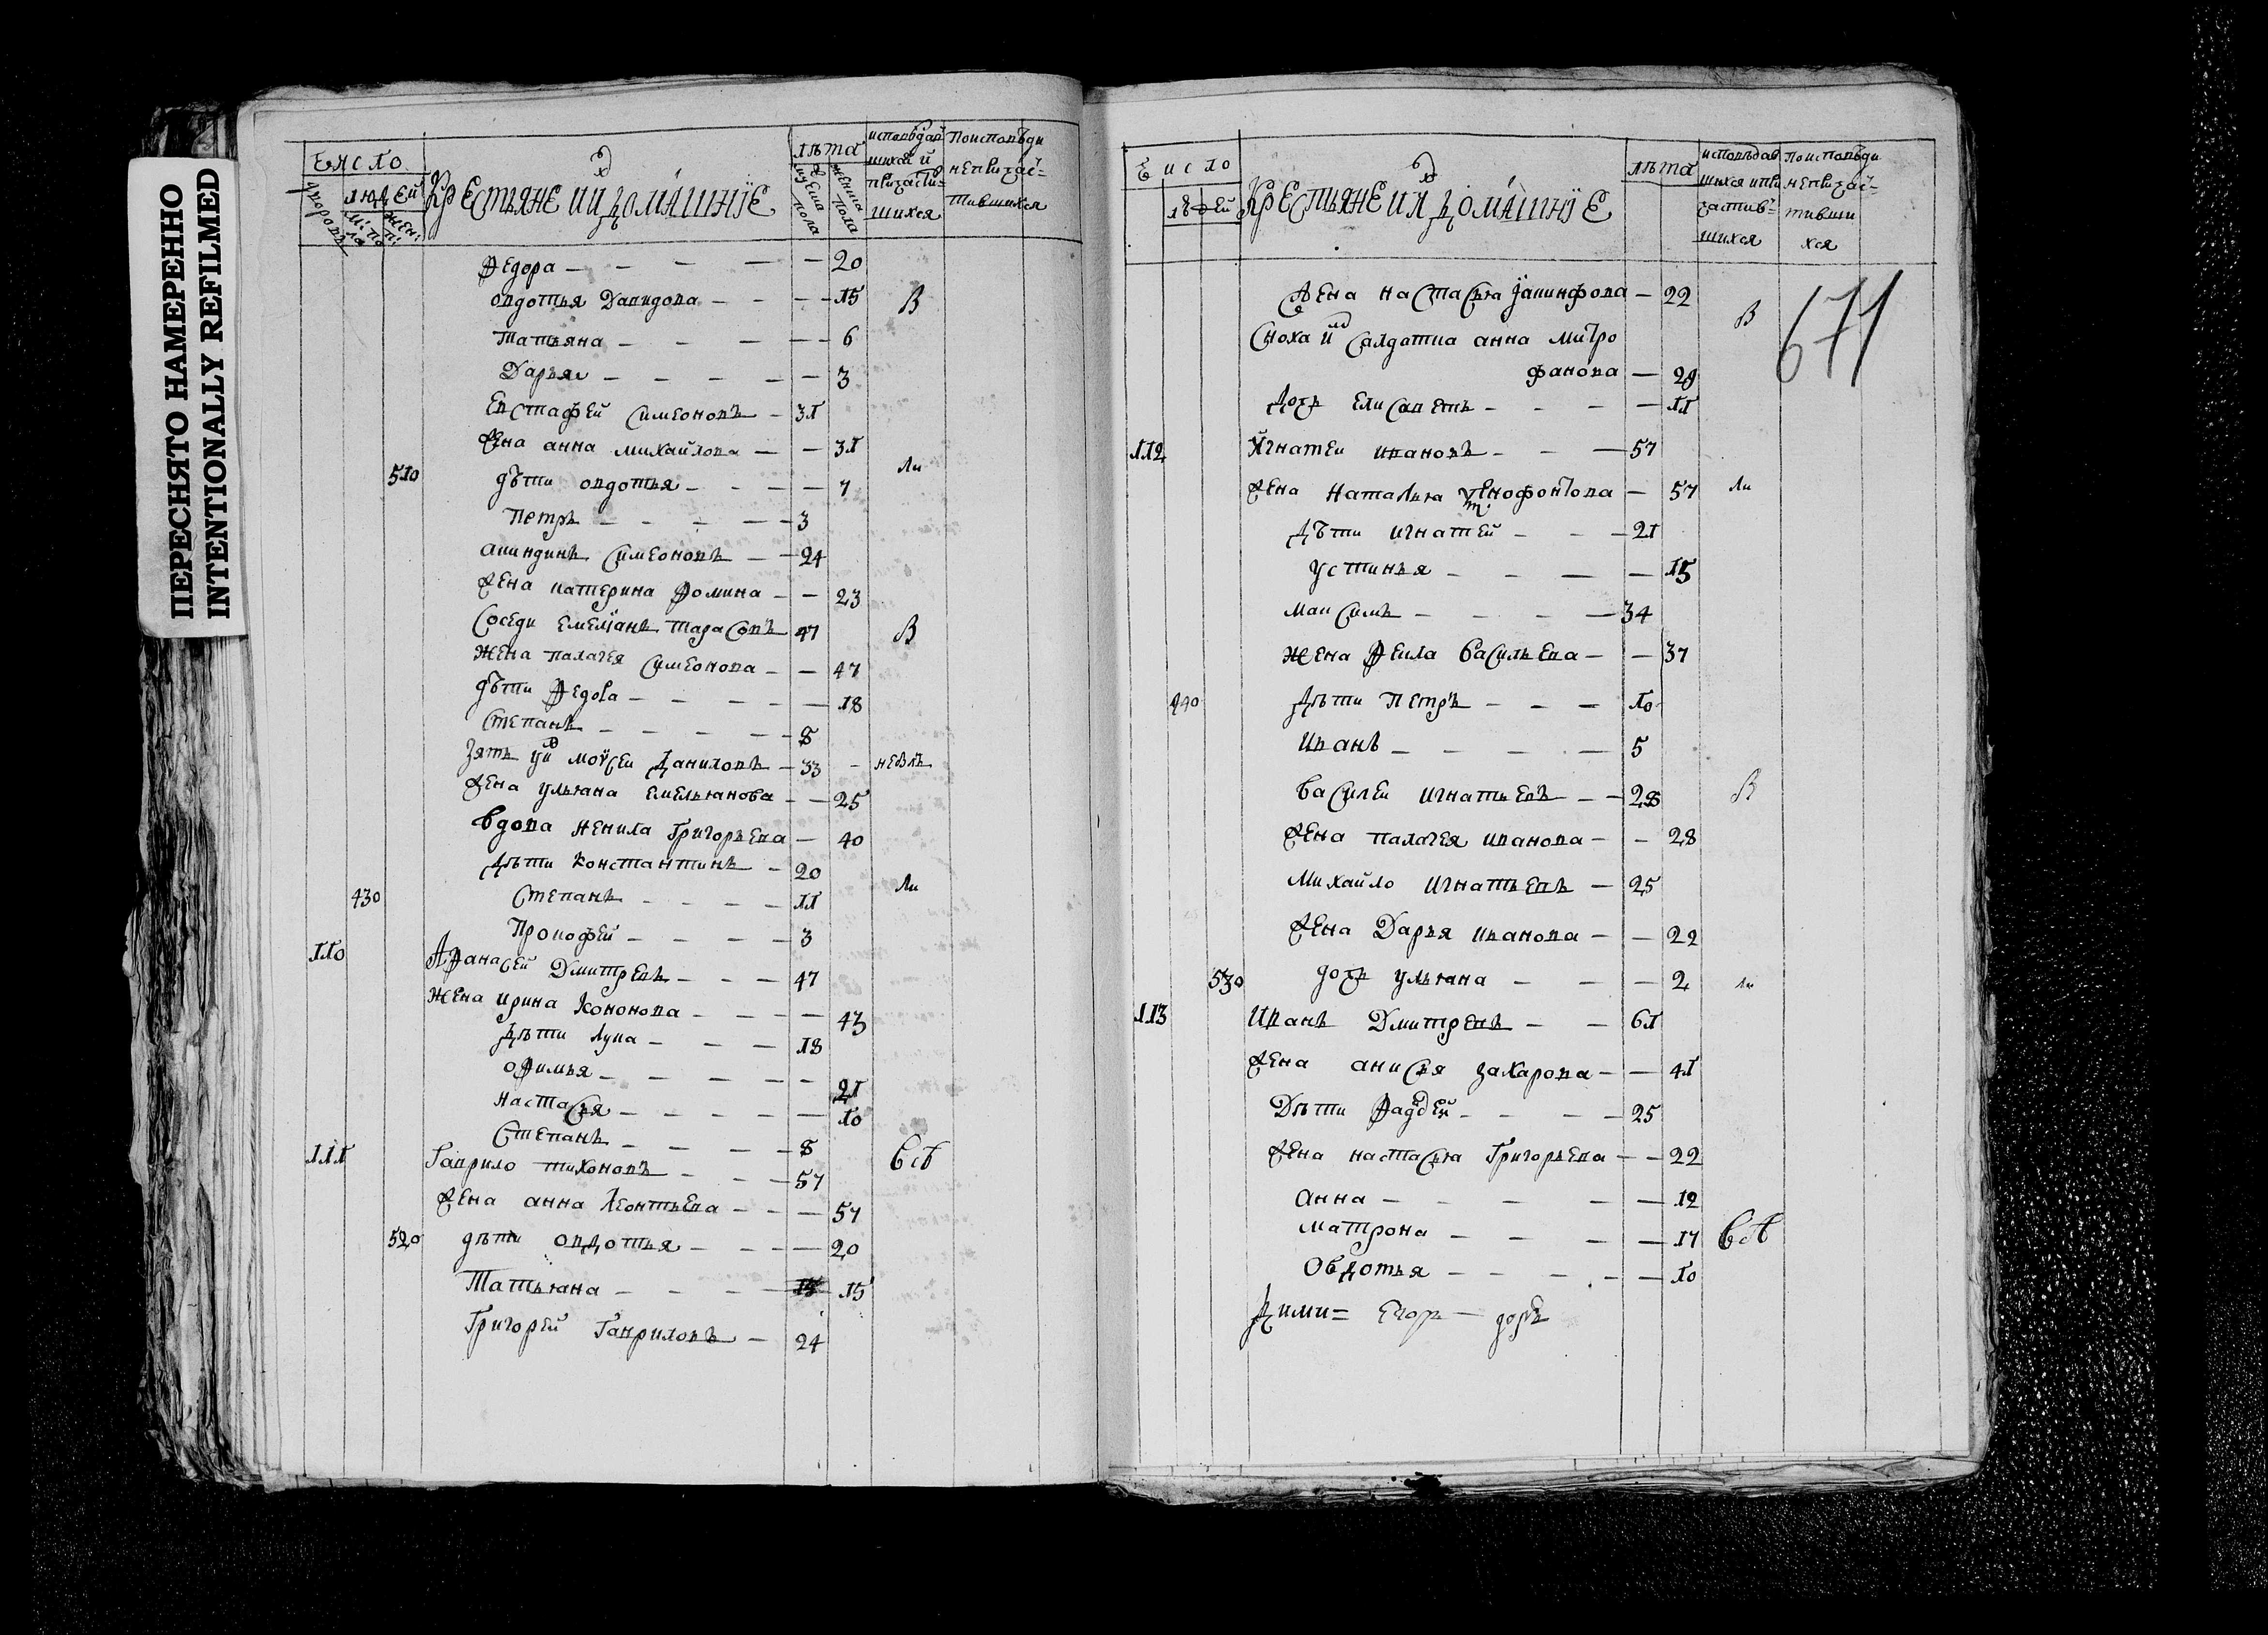 ПЕРЕСНЯТО НАМЕРЕННО
INTENTIONALLY REFILMED
Число
людей
Крестьяне и их домашніе
лѣта
мужеска пола
женска пола
исповѣдав
шихся и
причасти=
шихся
По исповѣди
непричас=
тившихся
Федора — 20
овдотья Давидова — 15 В
татьяна — 6
Дарья — 3
Евстафей Симеоновъ — 31
жена анна михайлова — 31
510 дѣти овдотья — 7 ли
Петръ — 3
акиндинъ Симеоновъ — 24
жена катерина Фомина — 23
Соседи емеліанъ тарасовъ 47 В
жена палагея Симеонова — 47
дѣти Федора — 18
Степанъ — 8
Зять их моѵсеи Даниловъ — 33
жена ульяна емельянова — 25
вдова ненила Григорьева — 40
Дѣти константинъ — 20
430 Степанъ — 11 ли
Прокофей — 3
110 Афанасей Дмитревъ — 47
жена ирина Кононова — 43
Дѣти лука — 18
офимья — 21
настасья — 10
Степанъ — 8
111 Гаврило тихоновъ — 57
жена анна Леонтьева — 57
520 дѣти овдотья — 20
Татьяна — 15
Григорей Гавриловъ — 24
Число
людей
Крестьяне и их домашніе
лѣта
исповѣдав
шихся и при
частив=
шихся
По исповѣди
непричас=
тивши
хся
671
жена настасья — 22 В
Сноха их Салдатка анна митро
фанова — 29
Дочь елисаветъ — 11
112 Игнатеи ивановъ — 57
жена наталья — 57 ли
Дѣти игнатей — 21
устинья — 15
максимъ — 34
жена Фекла васильева — 37
440 Дѣти Петръ — 10
Иванъ — 5
василеи игнатьевъ — 28 В
жена палагея иванова — 28
михайло игнатьевъ — 25
жена Дарья иванова — 22
530 дочь ульяна — 2 ли
113 Иванъ Дмитревъ — 61
жена анисья захарова — 41
Дѣти Фаддей — 25
жена настасья Григорьева — 22
анна — 12
матрона — 17
Овдотья — 10